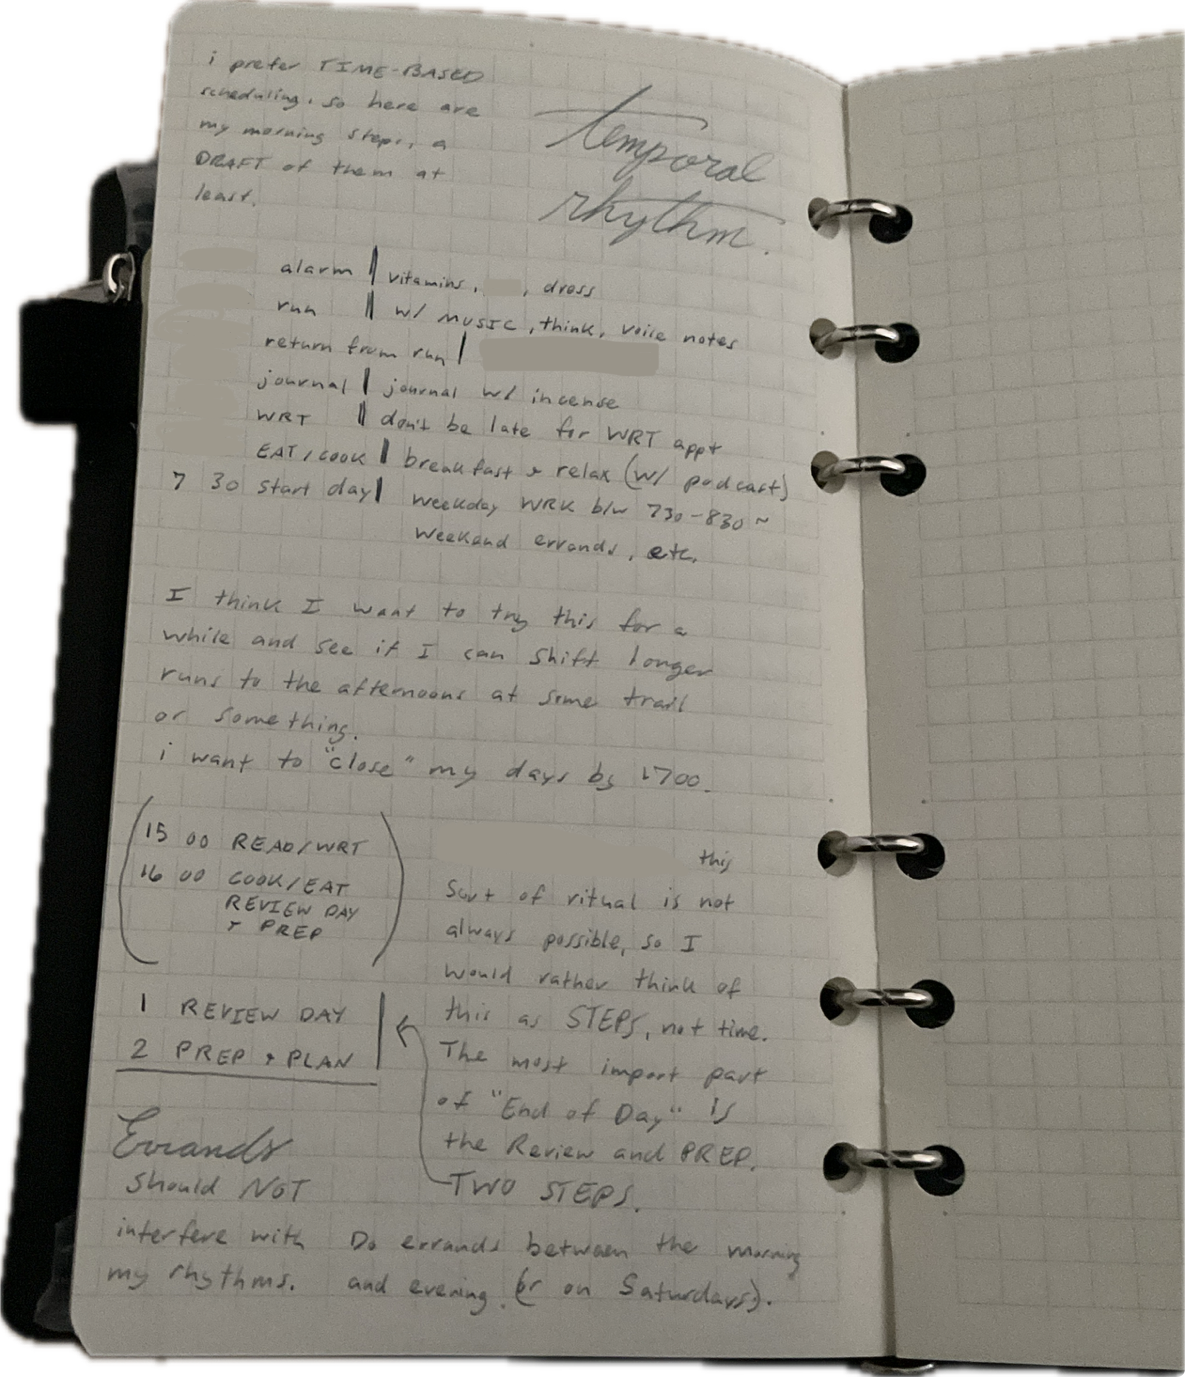 i prefer TIME-BASED
scheduling, so here are
my morning steps, a
DRAFT of them at
least.
temporal
rhythm.
alarm | vitamins, , dress
run || w/ MUSIC, think, voice notes
return from run |
journal | journal w/ incense
WRT || don't be late for WRT appt
EAT/COOK | breakfast + relax (w/ podcast)
7 30 start day | weekday WRK b/w 730-830 ~
weekend errands, etc.
I think I want to try this for a
while and see if I can shift longer
runs to the afternoons at some trail
or something.
i want to "close" my days by 1700.
15 00 READ/WRT
16 00 COOK/EAT
REVIEW DAY
+ PREP
1 REVIEW DAY
2 PREP + PLAN
this
sort of ritual is not
always possible, so I
would rather think of
this as STEPS, not time.
The most import part
of "End of Day" is
the Review and PREP.
TWO STEPS.
Errands
should NOT
interfere with
my rhythms.
Do errands between the morning
and evening. (or on Saturdays).